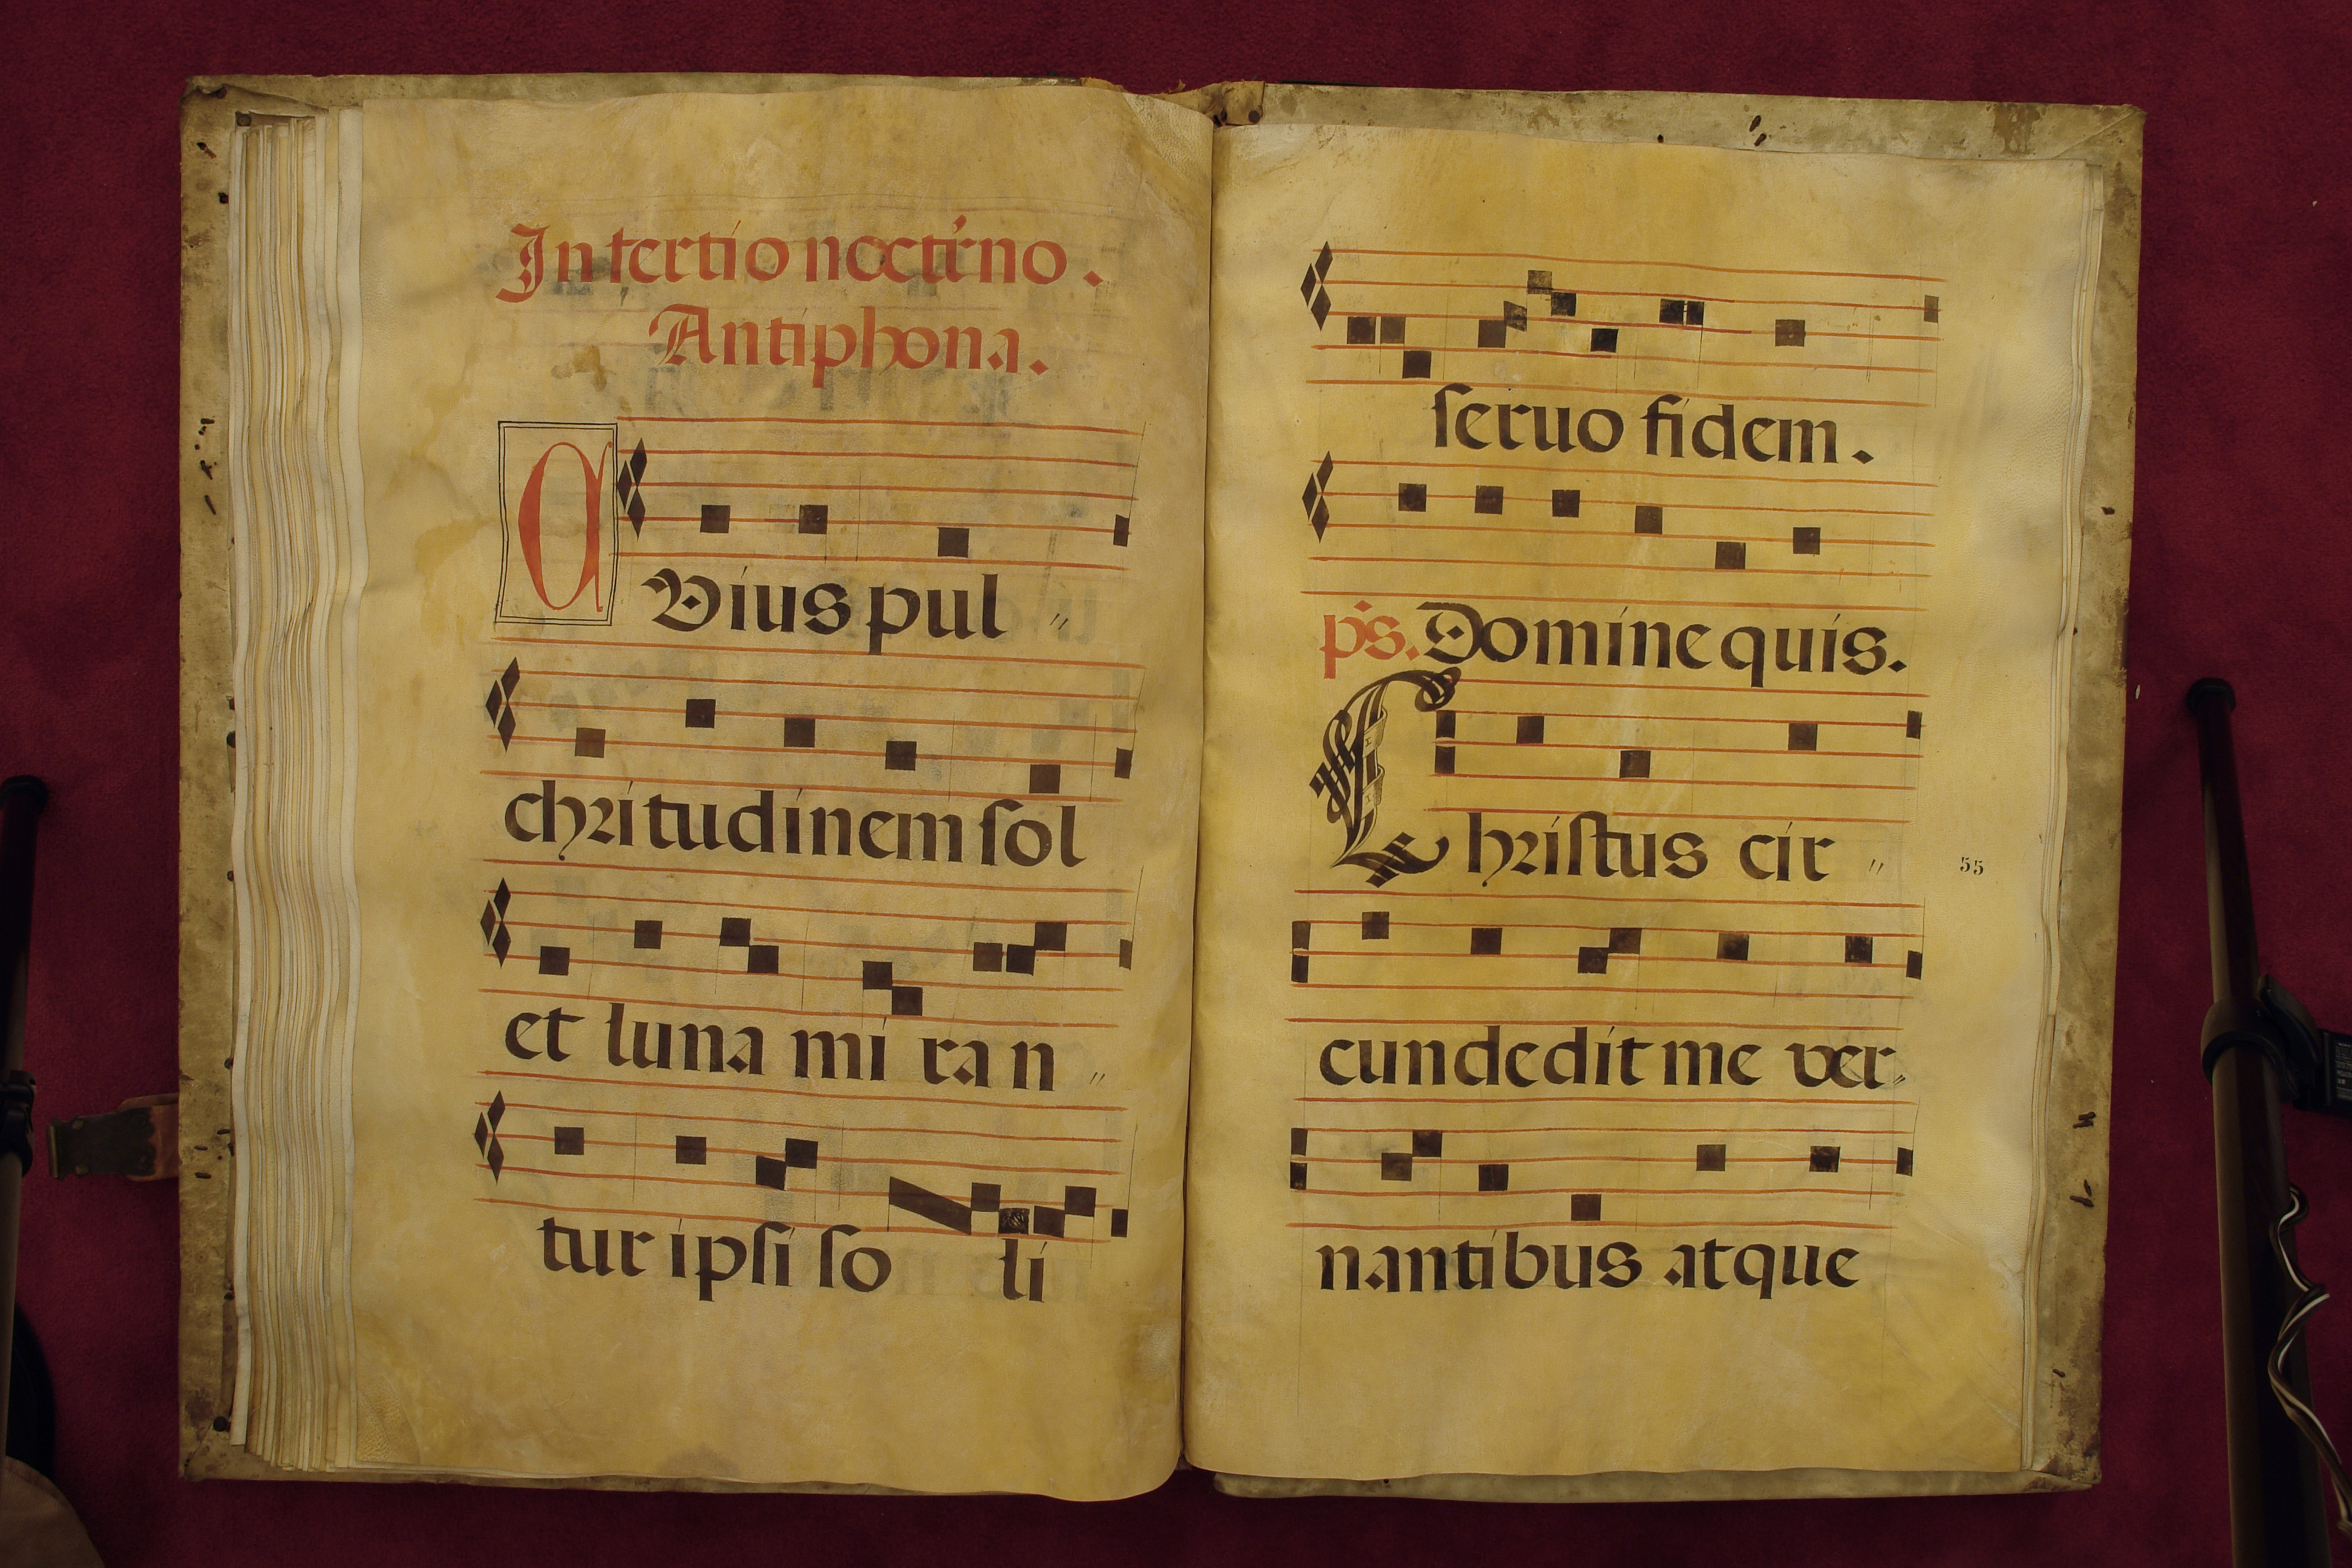 In tertio noctrno.
Antiphona.
CVius pul
chritudinem sol
et luna mi ran
tur ipsi so li
seruo fidem.
ps. Domine quis.
Christus cir
55
cundedit me ver
nantibus atque